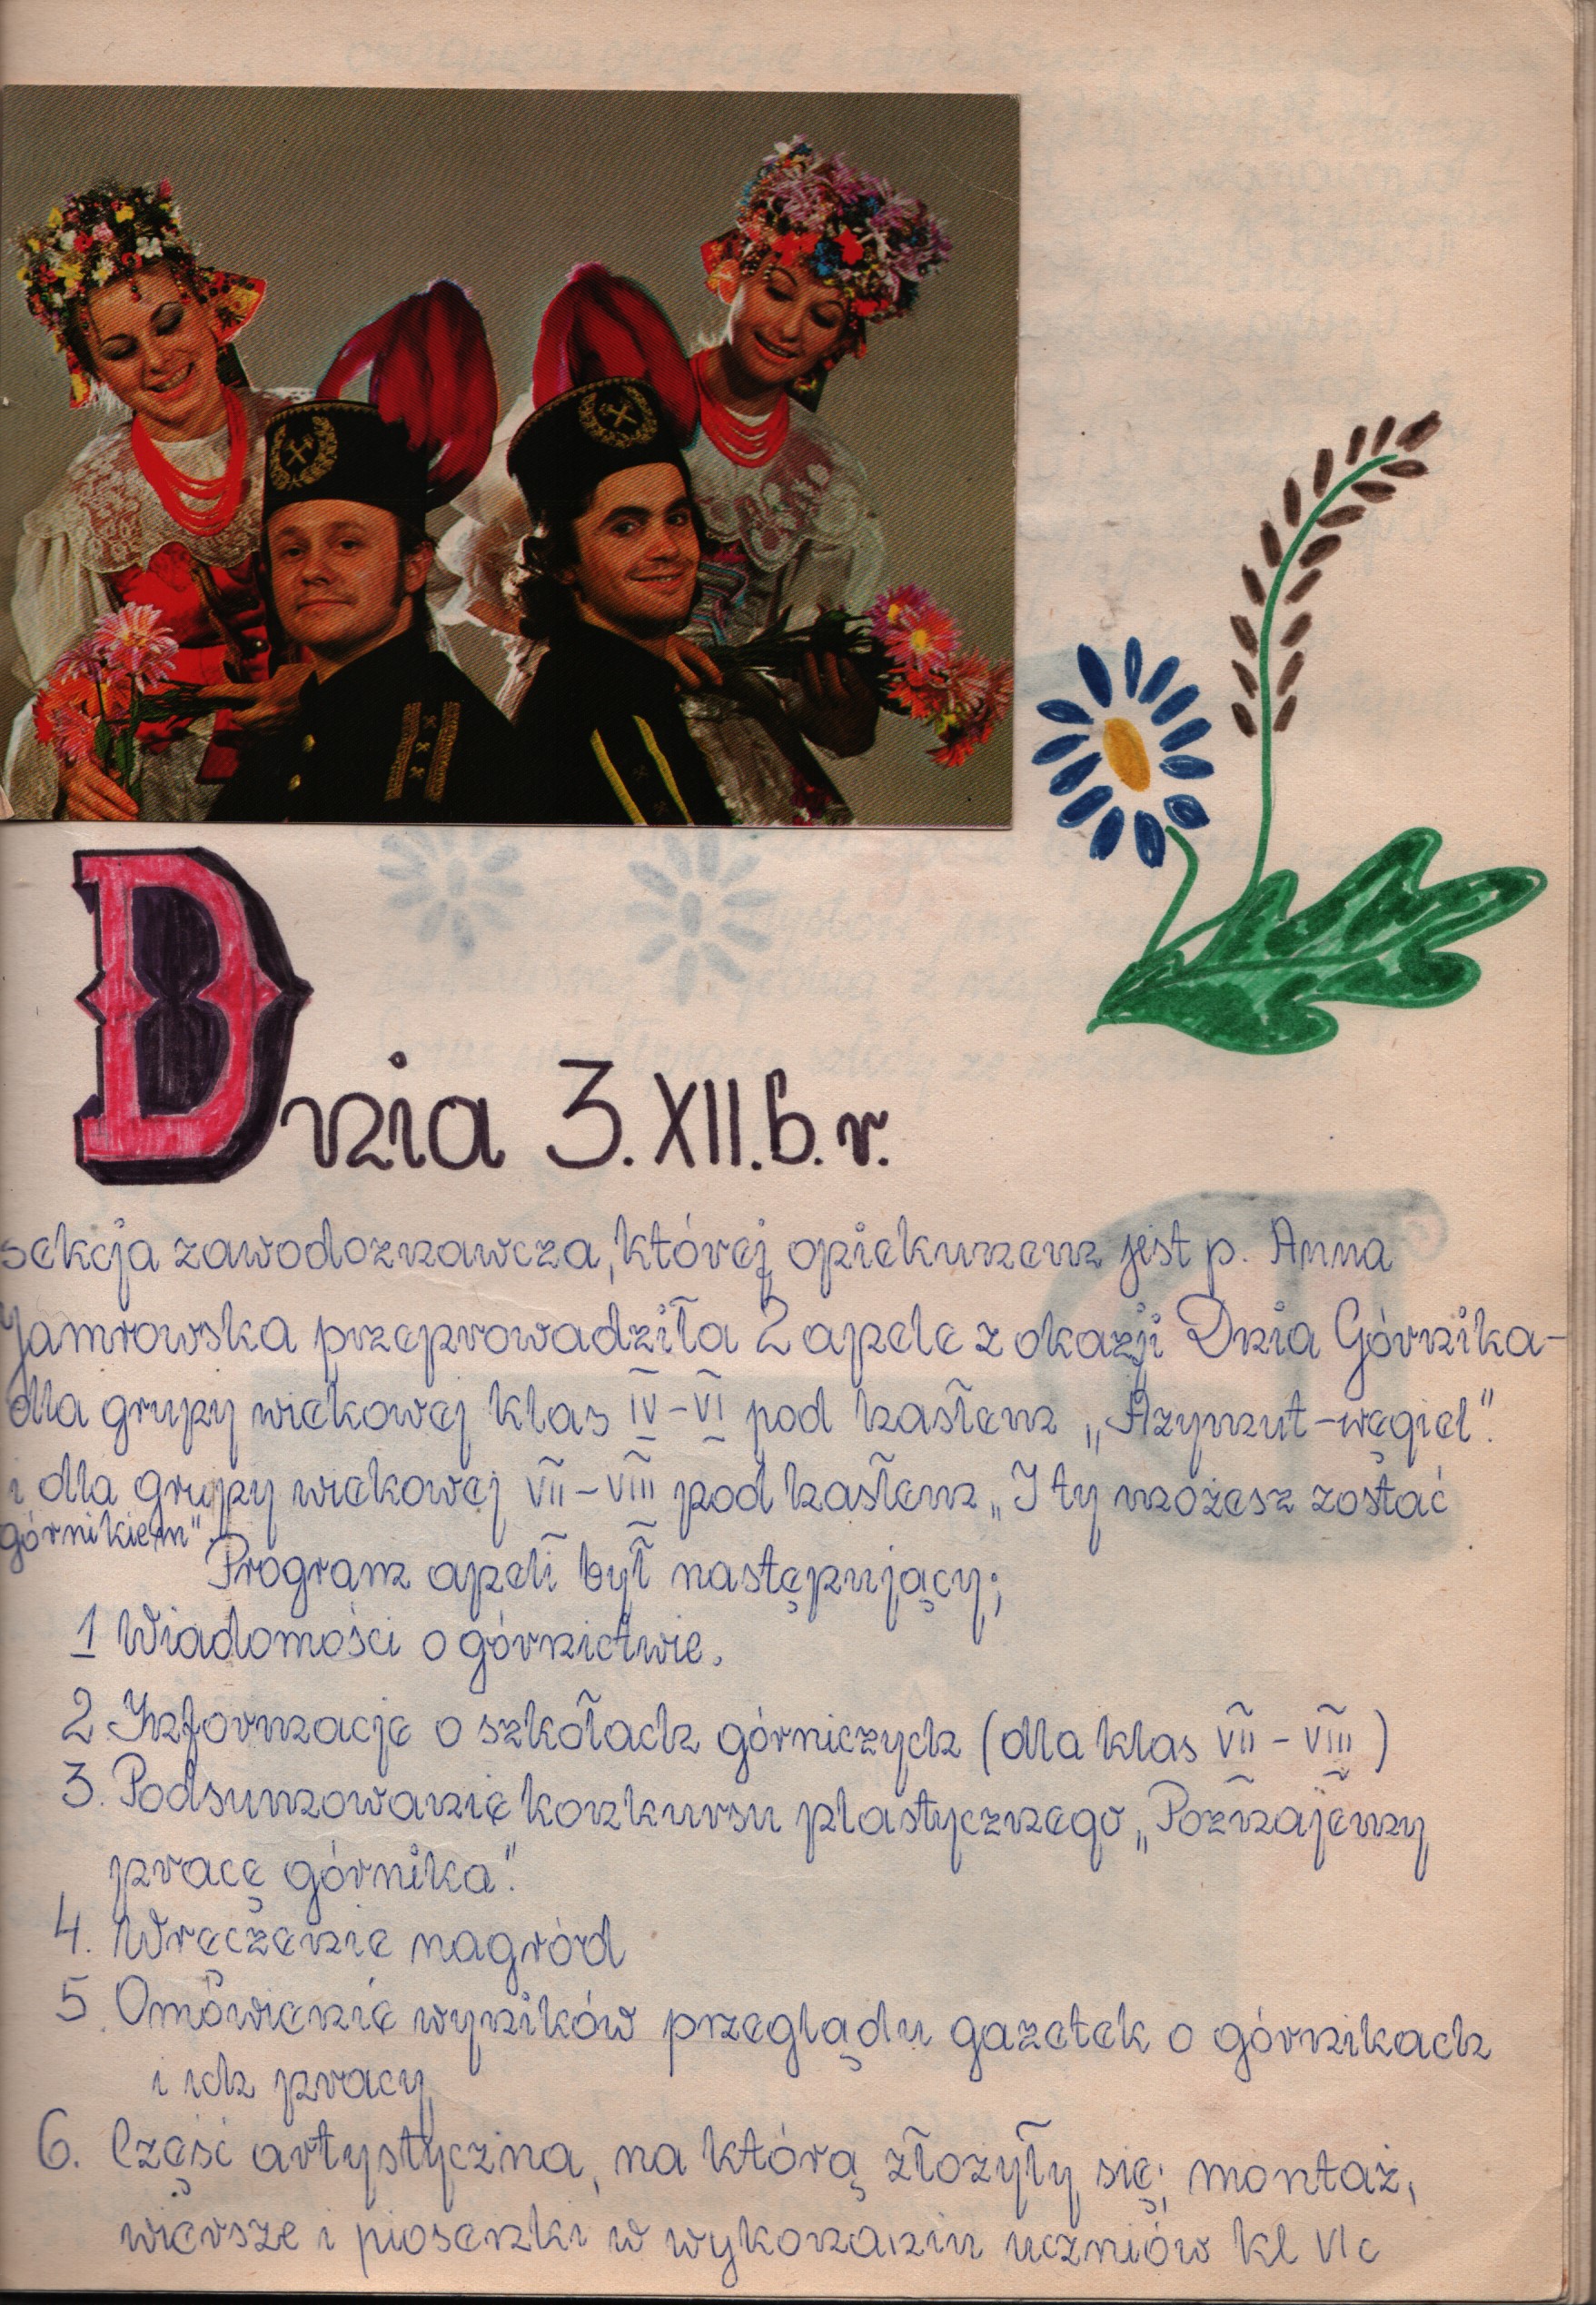 Dnia 3.XII.b.r.
sekcja zawodoznawcza, której opiekunem jest p. Anna
Jamrowska przeprowadziła 2 apele z okazji Dnia Górnika-
dla grupy wiekowej klas IV-VI pod hasłem „Azymut-węgiel”.
i dla grupy wiekowej VII-VIII pod hasłem „I ty możesz zostać
górnikiem”.
Program apeli był następujący;
1 Wiadomości o górnictwie.
2 Informacje o szkołach górniczych (dla klas VII-VIII)
3. Podsumowanie konkursu plastycznego „Poznajemy
pracę górnika”.
4. Wręczenie nagród
5. Omówienie wyników przeglądu gazetek o górnikach
i ich pracy
6. Część artystyczna, na którą złożyły się; montaż,
wiersze i piosenki w wykonaniu uczniów kl VIc